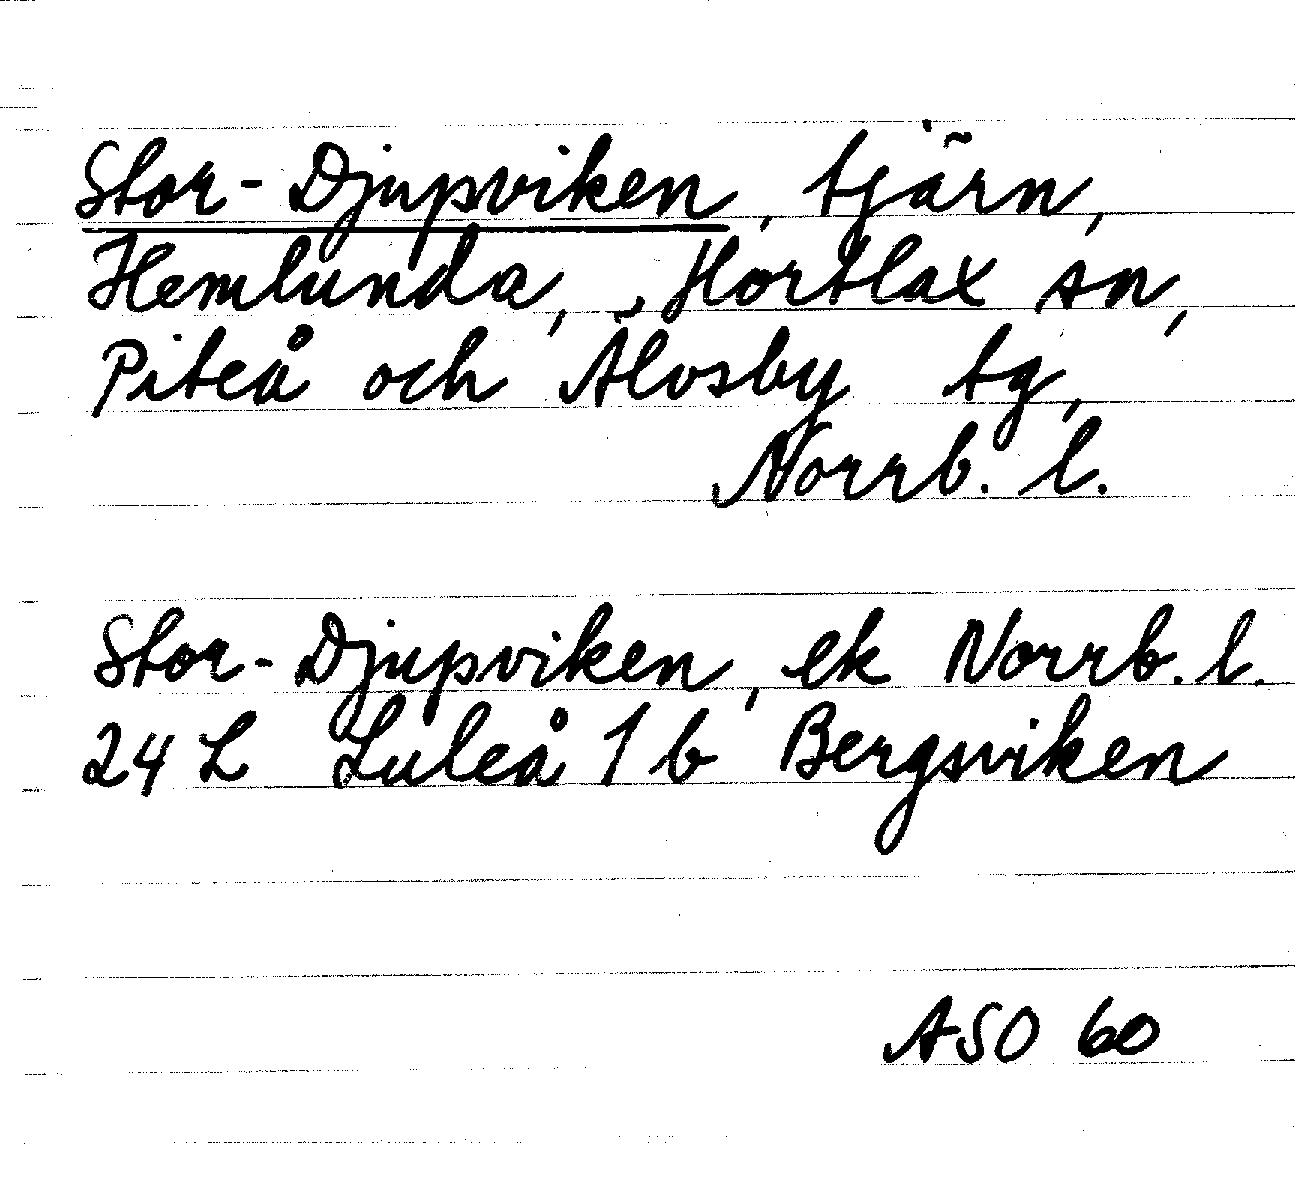 Stor-Djupviken, tjärn,
Hemlunda, Hortlax sn,
Piteå och Älvsby tg,
Norrb. l.
Stor-Djupviken, ek Norrb. l.
24 L Luleå 1 b Bergsviken
ASO 60